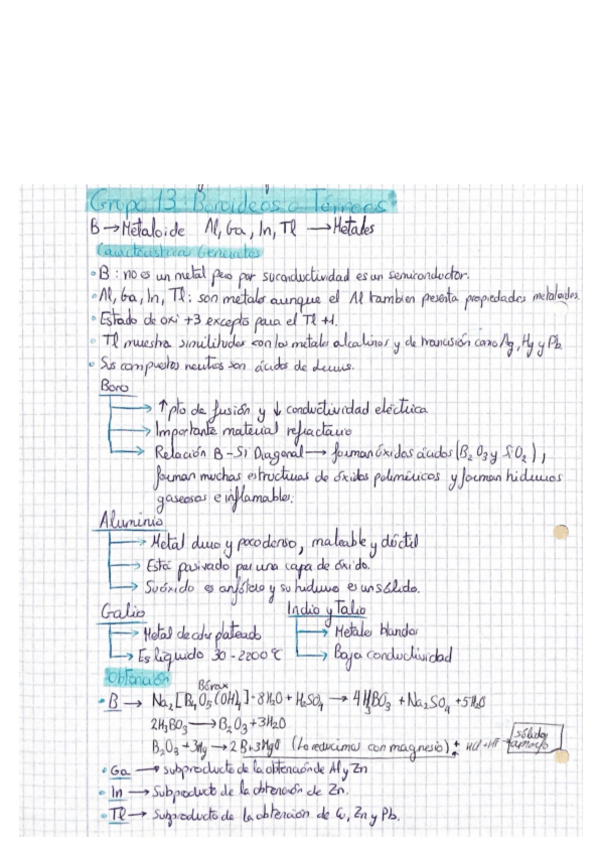 Grupo 13: Boroideos o Térreos
B → Metaloide Al, Ga, In, Tl → Metales
Características Generales
• B: no es un metal pero por su conductividad es un semiconductor.
• Al, Ga, In, Tl: son metales aunque el Al tambien presenta propiedades metaloides.
• Estado de oxi +3 excepto para el Tl +1.
• Tl muestra similitudes con los metales alcalinos y de transición como Ag, Hg y Pb.
• Sus compuestos neutros son ácidos de Lewis.
Boro
→ ↑ pto de fusión y ↓ conductividad eléctrica
→ Importante material refractario
→ Relación B-Si Diagonal → forman óxidos ácidos (B2O3 y SiO2),
forman muchas estructuras de óxidos poliméricos y forman hidruros
gaseosos e inflamables.
Aluminio
→ Metal duro y poco denso, maleable y dúctil
→ Está pasivado por una capa de óxido.
→ Su óxido es anfótero y su hidruro es un sólido.
Galio Indio y Talio
→ Metal de color plateado → Metales blandos
→ Es líquido 30-2200°C → Baja conductividad
Obtención
Bórax
• B → Na2[B4O5(OH)4]·8H2O + H2SO4 → 4H3BO3 + Na2SO4 + 5H2O
2H3BO3 → B2O3 + 3H2O
B2O3 + 3Mg → 2B + 3MgO (Lo reducimos con magnesio) + HCl + HF → sólido amorfo
• Ga → subproducto de la obtención de Al y Zn
• In → Subproducto de la obtención de Zn.
• Tl → Subproducto de la obtención de Cu, Zn y Pb.